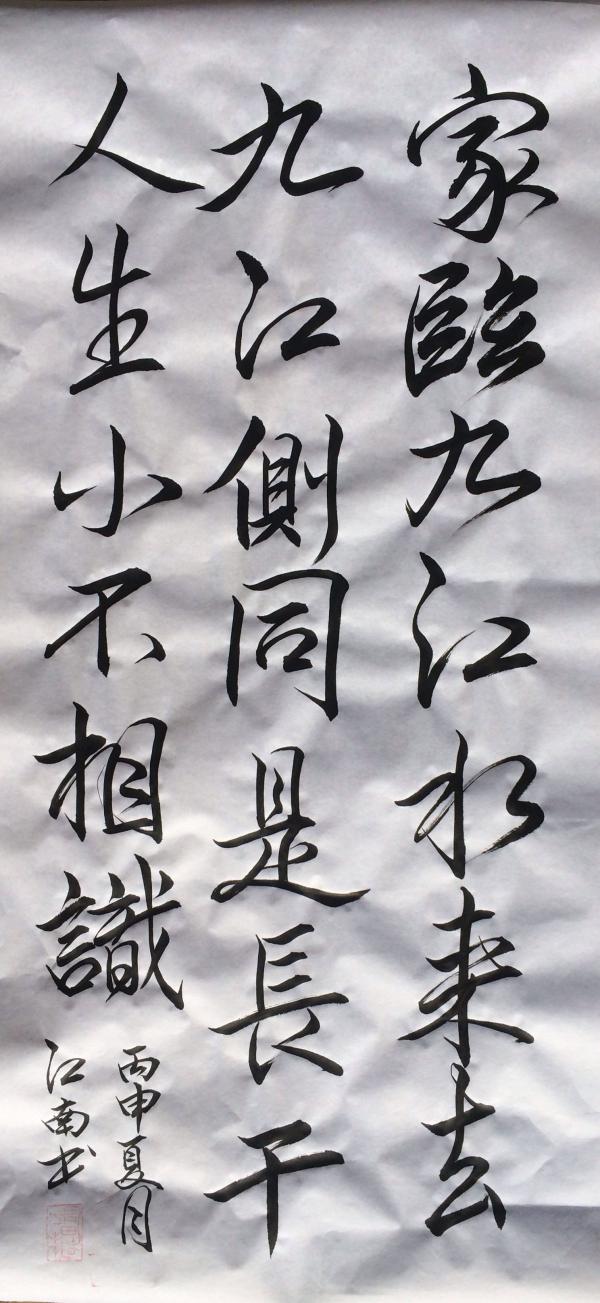 家臨九江水来去
九江側同是長干
人生小不相識
丙申夏月
江南书